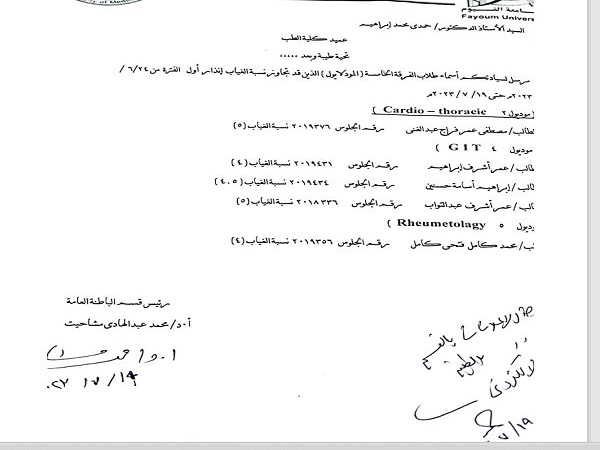 جامعة الفيوم
Fayoum Univers
of Medic
السيد الأستاذ الدكتور / حمدى محمد إبراهيم
عميد كلية الطب
تحية طيبة وبعد .....
مرسل لسيادتكم أسماء طلاب الفرقة الخامسة ( المودلايول ) الذين قد تجاوز نسبة الغياب إنذار أول الفترة من ٦/٢٤ /
٢٠٢٣م حتى ٧/١٩ / ٢٠٢٣م
( موديول ٢ Cardio – thoracic )
لطالب / مصطفى عمر فراج عبد الغنى رقم الجلوس ٢٠١٩٣٧٦ نسبة الغياب (٥)
موديول ٤ G I T )
طالب / عمر أشرف إبراهيم رقم الجلوس ٢٠١٩٤٣١ نسبة الغياب ( ٤ )
طالب / إبراهيم أسامة حسنين رقم الجلوس ٢٠١٩٤٣٤ نسبة الغياب ( ٤.٥ )
الب / عمر أشرف عبد التواب رقم الجلوس ٢٠١٨٣٣٦ نسبة الغياب (٥)
وديول ٥ Rheumetolagy )
ب / محمد كامل فتحى كامل رقم الجلوس ٢٠١٩٣٥٦ نسبة الغياب (٤)
رئيس قسم الباطنة العامة
أ.د/ محمد عبد الهادى مشاحيت
١٩ / ٧ / ٢٠٢٣
٧/١٩